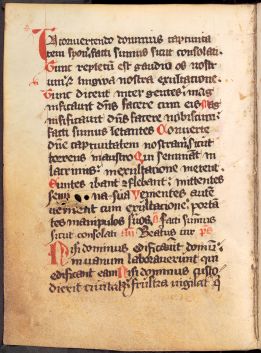 In convertendo dominus captiuita
tem syon facti sumus sicut consolati
Tunc repletum est gaudio os nost
rum et lingwa nostra exultatione
Tunc dicent inter gentes mag
nificauit dns facere cum eis Mag
nificauit dns facere nobiscum
facti sumus letantes Conuerte
dne captiuitatem nostram sicut
torrens in austro Qui seminant in
lacrimis in exultatione metent
Euntes ibant et flebant mittentes
semina sua Venientes aute
uenient cum exultatione porta
tes manipulos suos facti sumus
sicut consolati an Beatus uir ps
Nisi dominus edificauerit domum
in uanum laborauerunt qui
edificant eam Nisi dominus custo
dierit ciuitatem frustra uigilat q